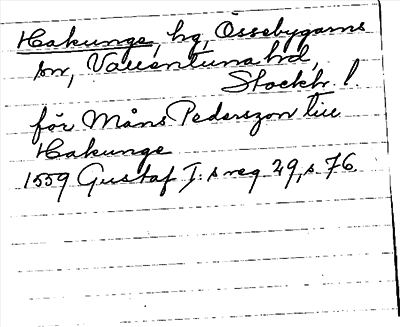 Hakunge, hg, Össebygarns
sn, Vallentuna hd,
Stockh. l.
för Måns Pederszon till
Hakunge
1559 Gustaf I:s reg 29, s. 76